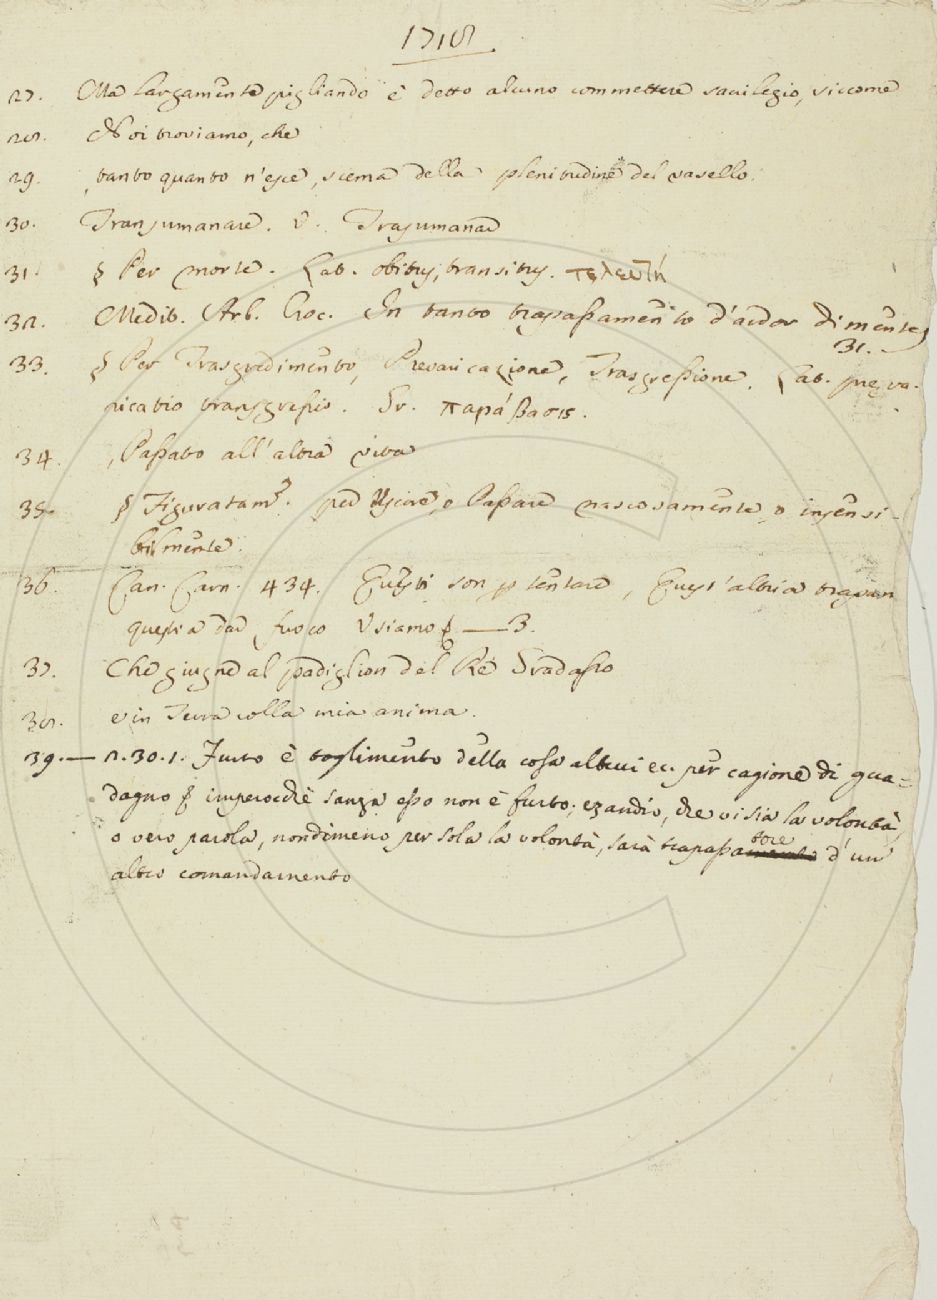 1718
27. Ma largamente pigliando è detto alcuno commettere sacilegio, siccome
28. Noi troviamo, che
29. , tanto quanto n'esce, scema della plenitudine del vasello.
30. Transumanare. V. Trasumanare
31. § Per morte. Lat. obitus, transitus. τελευτή
32. Medit. Arb. Croc. In tanto trapassamento d'ardor di mente
31.
33. § Per Trasgredimento, Prevaricazione, Trasgressione. Lat. preva-
ricatio transgressio. Gr. παράβασις.
34. , Passato all'altra vita
35. § Figuratam. per Uscire, o Passare nascosamente, o insensi-
bilmente.
36. Can. Carn. 434. Questi son p tentare, Quest'altra trapan
questa dar fuoco Usiamo § — 3.
37. Che giugne al padiglion del Re Gradasso
38. e in Terra colla mia anima.
39. — n. 30. 1. Furto è toglimento della cosa altrui ec. per cagione di gua-
dagno § imperocchè sanza esso non è furto, ezandio, che vi sia la volontà,
o vero parola, nondimeno per sola la volontà, sarà trapassatore d'un
altro comandamento